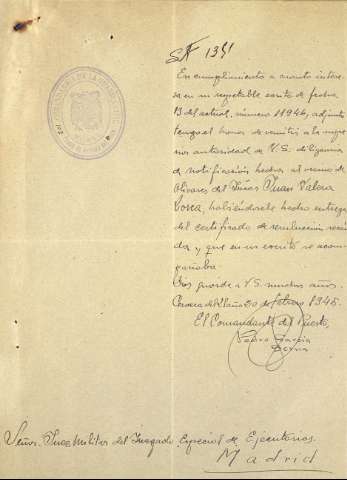 En cumplimiento a cuanto intere-
sa en su respetable escrito de fecha
13 del actual, número 11946, adjunto
tengo el honor de remitir a la supe-
rior autoridad de V.S. diligencia
de notificación hecha al vecino de
Olivares del Júcar Juan Valera
Lorca, habiéndosele hecho entrega
del certificado de resolución recaí-
da y que en su escrito se acom-
pañaba.
Dios guarde a V.S. muchos años.
Cervera del Llano 20 de febrero 1945.
El Comandante del Puesto,
Pedro García
Señor Juez Militar del Juzgado Especial de Ejecutorias.
Madrid